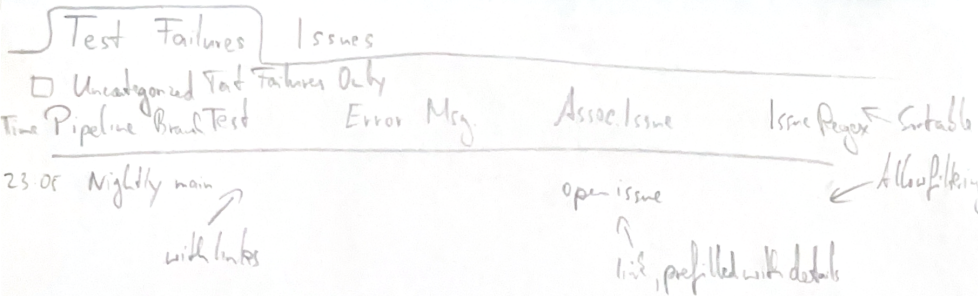 Test Failures Issues
Uncategorized Test Failures Only
Time Pipeline Branch Test Error Msg. Assoc. Issue Issue Regex Sortable
23:05 Nightly main open issue Allow filtering
with links link, prefilled with details